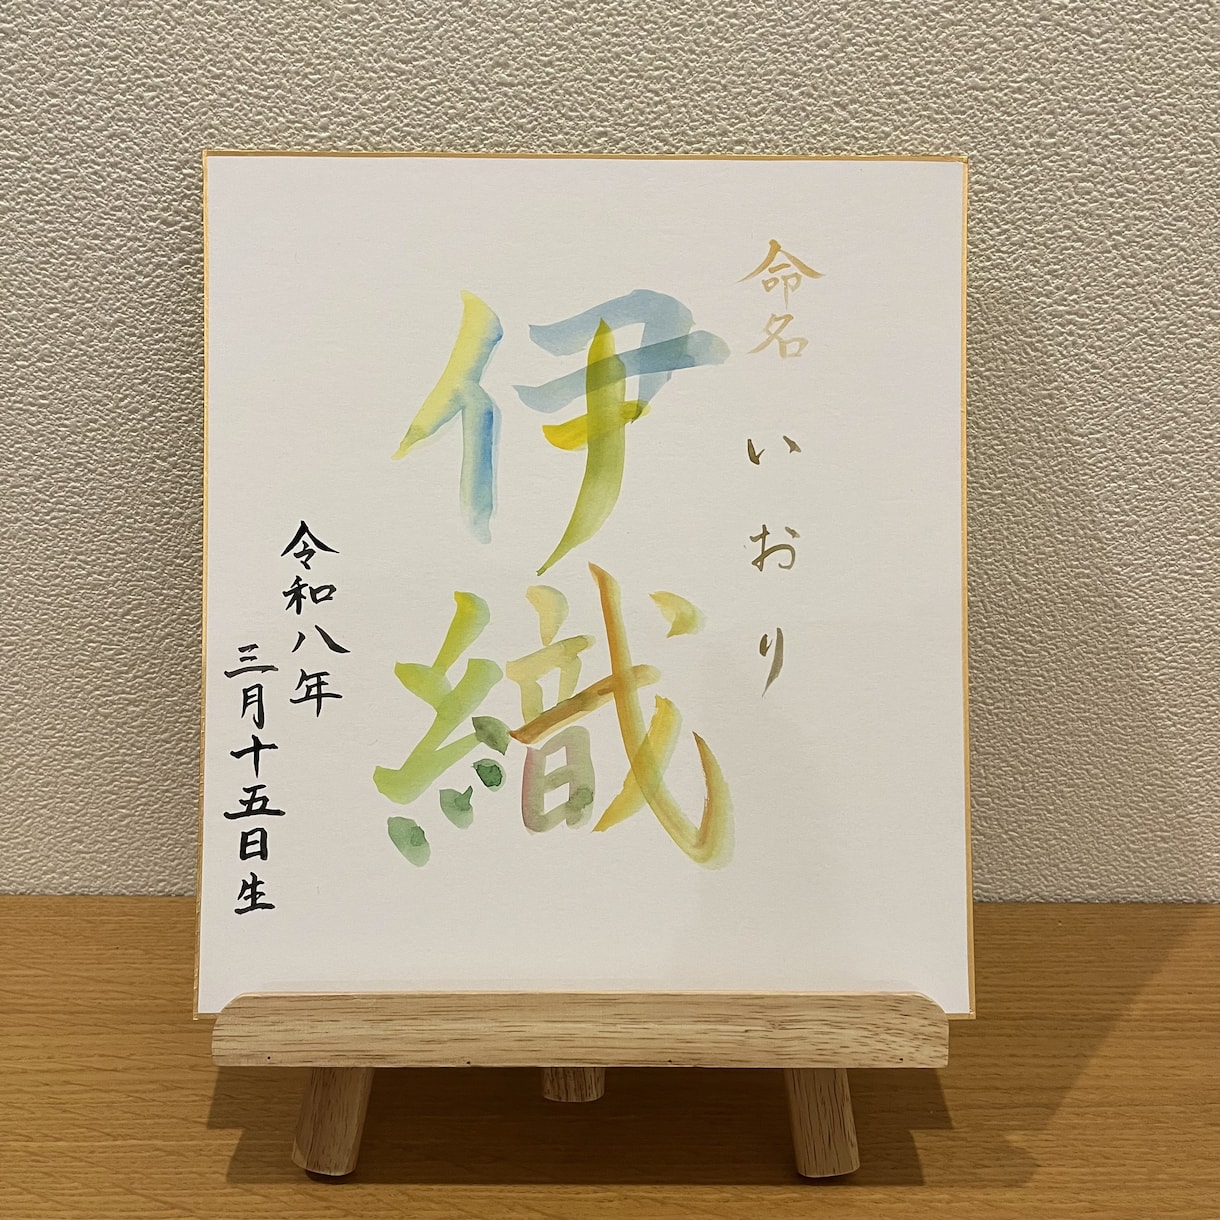 命名
いおり
伊織
令和八年
三月十五日生